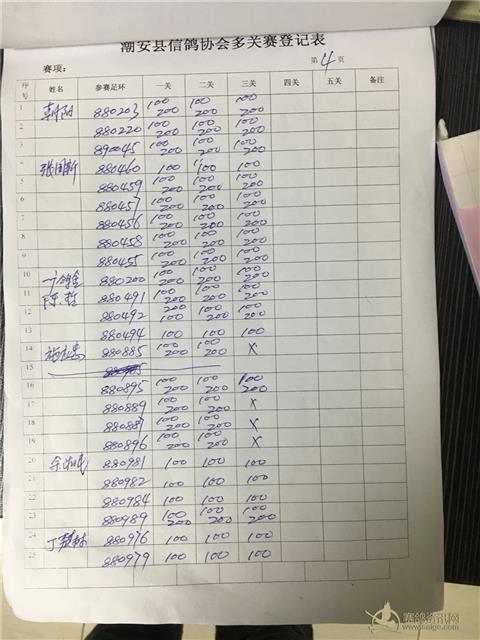 潮安县信鸽协会多关赛登记表
赛项： 第4页
序号 姓名 参赛足环 一关 二关 三关 四关 五关 备注
1 880203 100 200 100 200 100 200
2 880220 100 200 100 200 100 200
3 890045 100 200 100 200 100 200
4 张国新 880460 100 100 100
5 880459 100 200 100 200 100 200
6 880457 100 200 100 200 100 200
7 880456 100 200 100 200 100 200
8 880458 100 200 100 200 100 200
9 880455 100 200 100 200 100 200
10 880200 100 200 100 200 100 200
11 陈哲 880491 100 200 100 200 100 200
12 880492 100 200 100 200 100 200
13 880494 100 100 100
14 880885 100 200 100 200 X
15
16 880895 100 200 100 200 100 200
17 880889 100 200 100 200 X
18 880887 100 200 100 200 X
19 880896 100 200 100 200 X
20 880981 100 100 100
21 880982 100 100 100
22 880984 100 100 100
23 880989 100 200 100 200 100 200
24 880976 100 100 100
25 880979 100 100 100
赛鸽资讯网
www.saige.com